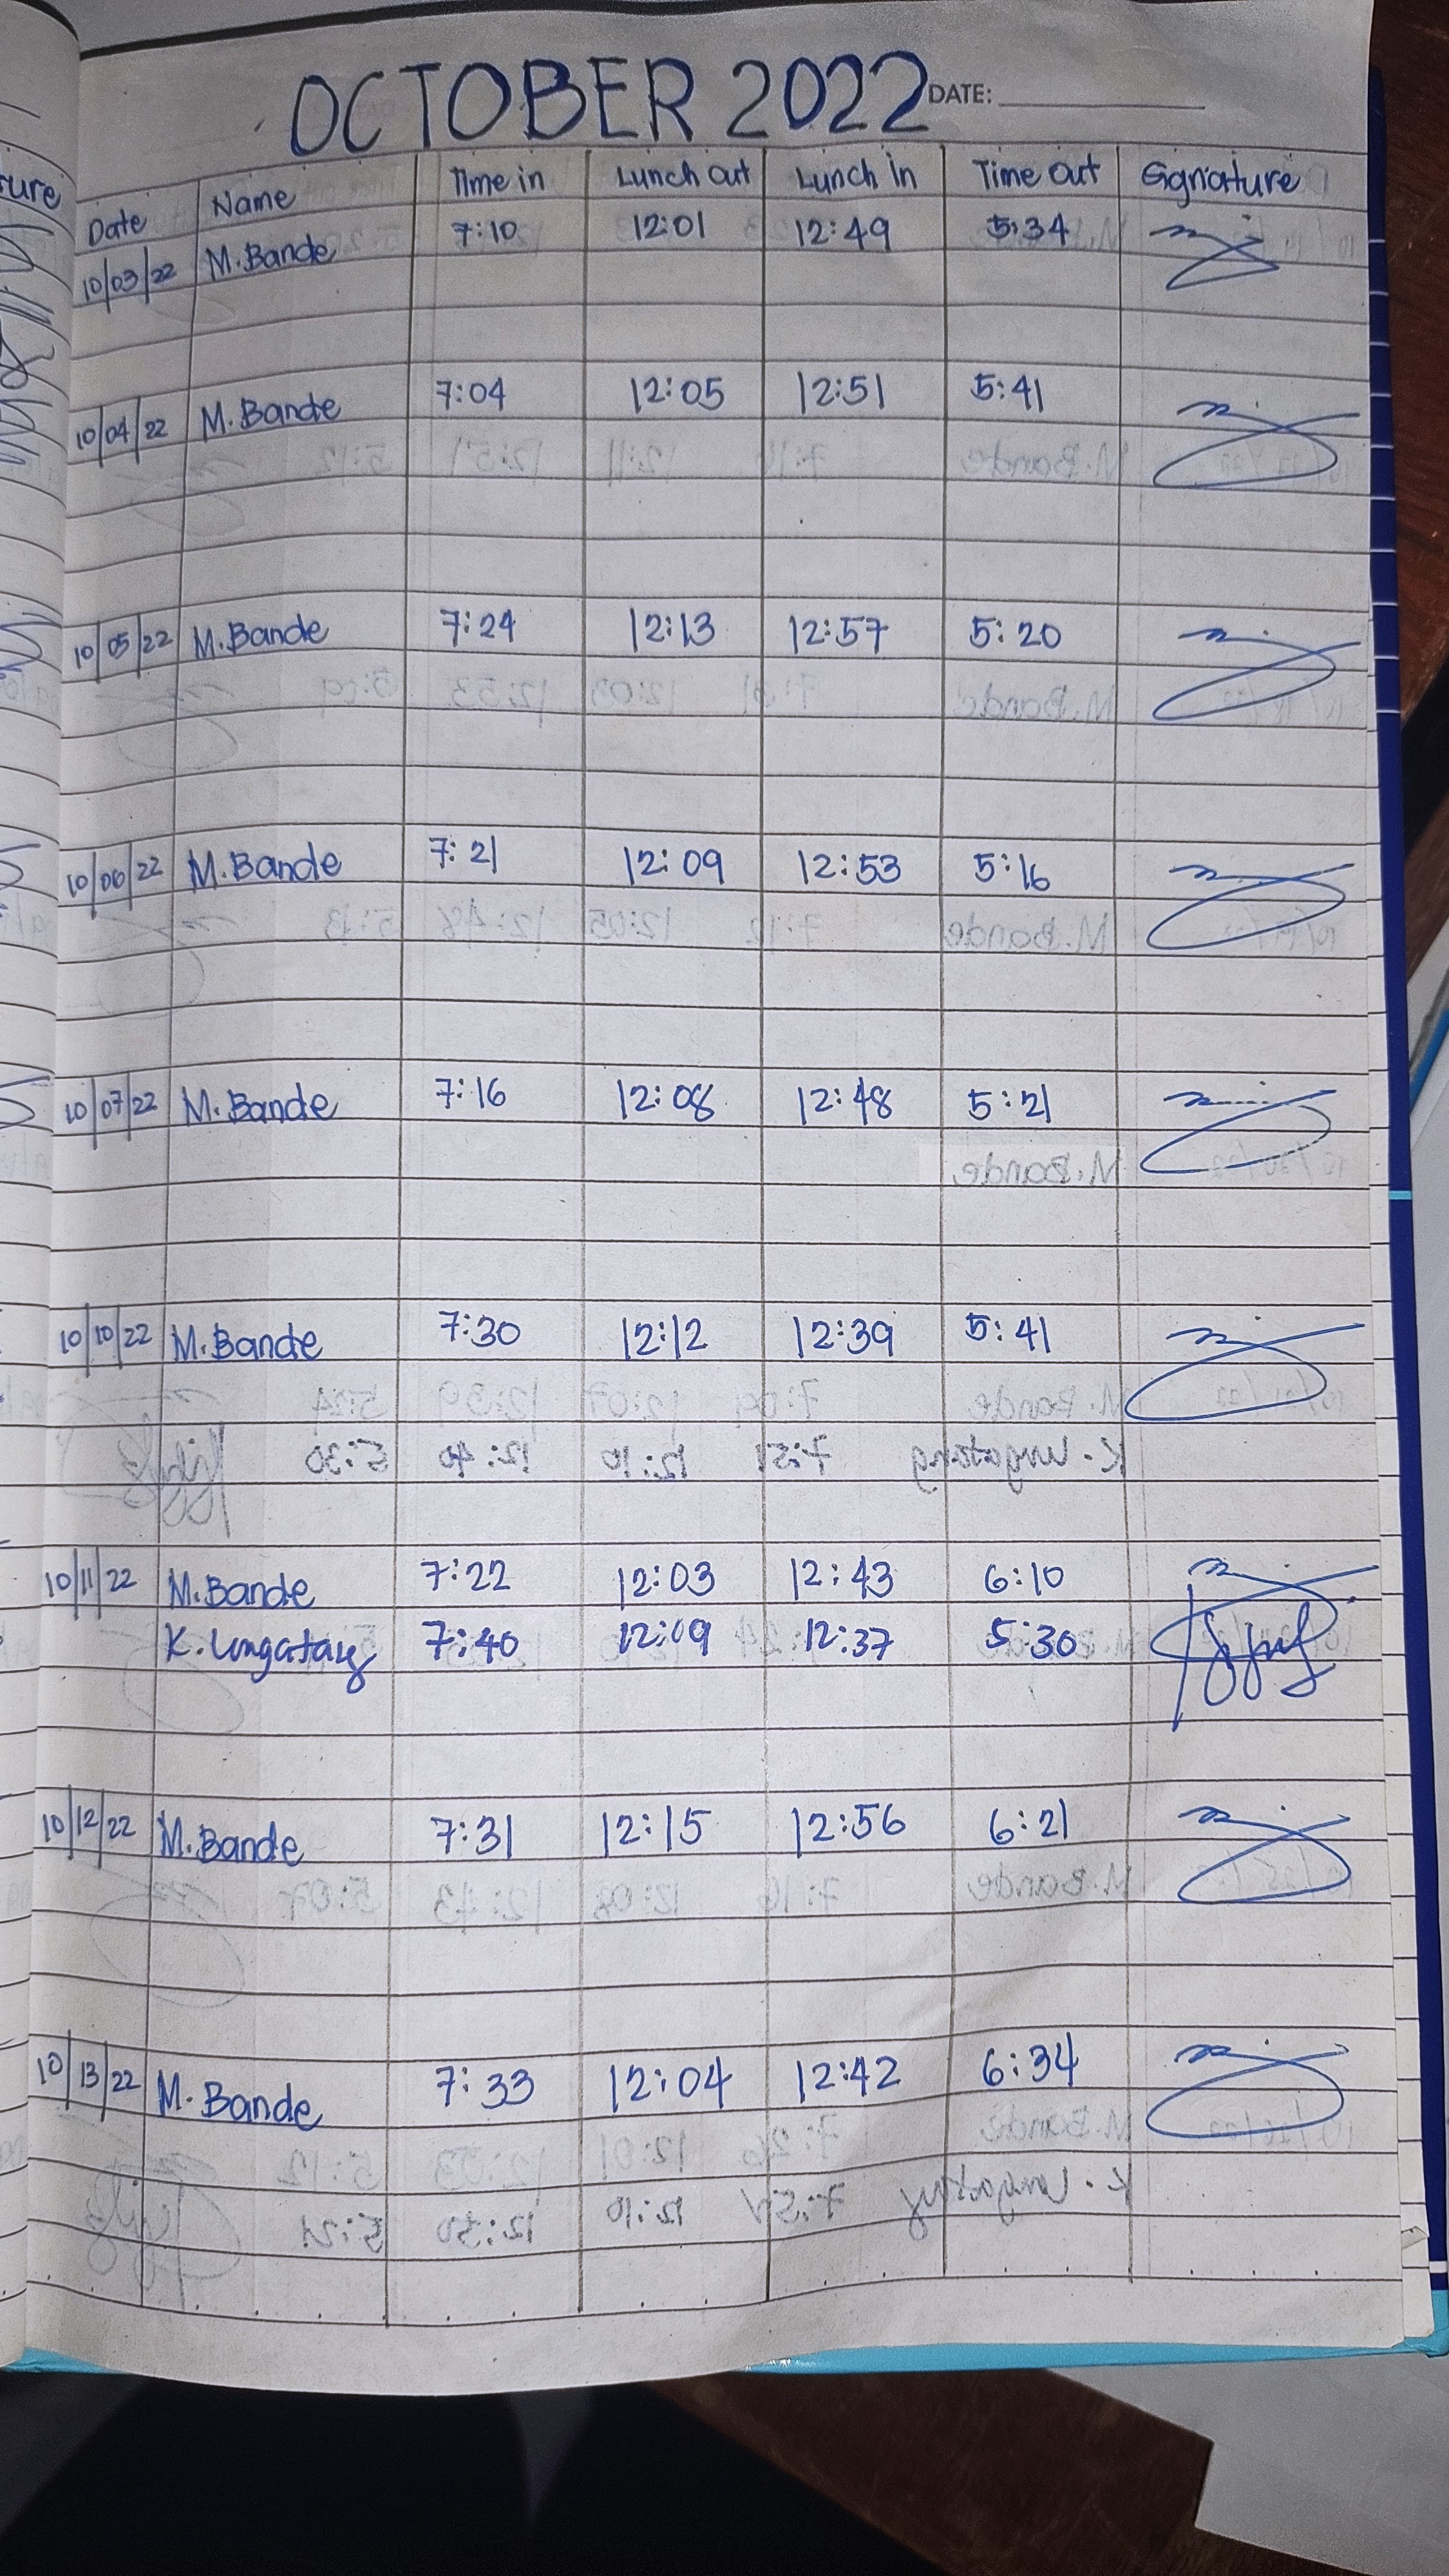 OCTOBER 2022 DATE:
Date Name Time in Lunch out Lunch in Time Out Signature
10/03/22 M.Bande 7:10 12:01 12:49 5:34
10/04/22 M.Bande 7:04 12:05 12:51 5:41
10/05/22 M.Bande 7:24 12:13 12:57 5:20
10/06/22 M.Bande 7:21 12:09 12:53 5:16
10/07/22 M.Bande 7:16 12:08 12:48 5:21
10/10/22 M.Bande 7:30 12:12 12:39 5:41
10/11/22 M.Bande 7:22 12:03 12:43 6:10
K. 7:40 12:09 12:37 5:30
10/12/22 M.Bande 7:31 12:15 12:56 6:21
10/13/22 M. Bande 7:33 12:04 12:42 6:34